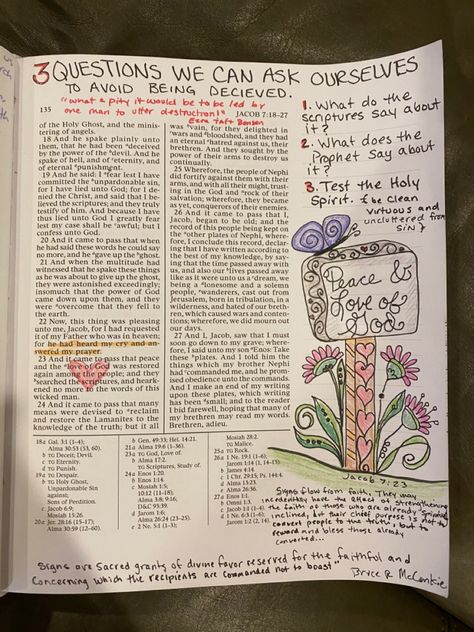 3 QUESTIONS WE CAN ASK OURSELVES
TO AVOID BEING DECIEVED.
"what a pity it would be to be led by
one man to utter destruction!"
Ezra Taft Benson
135
JACOB 7:18–27
of the Holy Ghost, and the minis-
tering of angels.
18 And he spake plainly unto
them, that he had been deceived
by the power of the devil. And he
spake of hell, and of eternity, and
of eternal punishment.
19 And he said: I fear lest I have
committed the unpardonable sin,
for I have lied unto God; for I de-
nied the Christ, and said that I be-
lieved the scriptures; and they truly
testify of him. And because I have
thus lied unto God I greatly fear
lest my case shall be awful; but I
confess unto God.
20 And it came to pass that when
he had said these words he could say
no more, and he gave up the ghost.
21 And when the multitude had
witnessed that he spake these things
as he was about to give up the ghost,
they were astonished exceedingly;
insomuch that the power of God
came down upon them, and they
were overcome that they fell to
the earth.
22 Now, this thing was pleasing
unto me, Jacob, for I had requested
it of my Father who was in heaven;
for he had heard my cry and an-
swered my prayer.
23 And it came to pass that peace
and the love of God was restored
again among the people; and they
searched the scriptures, and heark-
ened no more to the words of this
wicked man.
24 And it came to pass that many
means were devised to reclaim
and restore the Lamanites to the
knowledge of the truth; but it all
was vain, for they delighted in
wars and bloodshed, and they had
an eternal hatred against us, their
brethren. And they sought by the
power of their arms to destroy us
continually.
25 Wherefore, the people of Nephi
did fortify against them with their
arms, and with all their might, trust-
ing in the God and rock of their
salvation; wherefore, they became
as yet, conquerors of their enemies.
26 And it came to pass that I,
Jacob, began to be old; and the
record of this people being kept on
the other plates of Nephi, where-
fore, I conclude this record, declar-
ing that I have written according to
the best of my knowledge, by say-
ing that the time passed away with
us, and also our lives passed away
like as it were unto us a dream, we
being a lonesome and a solemn
people, wanderers, cast out from
Jerusalem, born in tribulation, in a
wilderness, and hated of our breth-
ren, which caused wars and conten-
tions; wherefore, we did mourn out
our days.
27 And I, Jacob, saw that I must
soon go down to my grave; where-
fore, I said unto my son Enos: Take
these plates. And I told him the
things which my brother Nephi
had commanded me, and he prom-
ised obedience unto the commands.
And I make an end of my writing
upon these plates, which writing
has been small; and to the reader
I bid farewell, hoping that many of
my brethren may read my words.
Brethren, adieu.
1. What do the
scriptures say about
it?
2. What does the
Prophet say about
it?
3. Test the Holy
Spirit. { be clean
virtuous and
uncluttered from
sin }
Peace &
Love of
God
Jacob 7:23
18a Gal. 3:1 (1–4);
Alma 30:53 (53, 60).
b TG Deceit; Devil.
c TG Eternity.
d TG Punish.
19a TG Despair.
b TG Holy Ghost,
Unpardonable Sin
against;
Sons of Perdition.
c Jacob 6:9;
Mosiah 15:26.
20a Jer. 28:16 (15–17);
Alma 30:59 (12–60).
b Gen. 49:33; Hel. 14:21.
21a Alma 19:6 (1–36).
23a TG God, Love of.
b Alma 17:2.
TG Scriptures, Study of.
24a Enos 1:20.
b Enos 1:14.
c Mosiah 1:5;
10:12 (11–18);
Alma 3:8; 9:16;
D&C 93:39.
d Jarom 1:6;
Alma 26:24 (23–25).
e 2 Ne. 5:1 (1–3);
Mosiah 28:2.
TG Malice.
25a TG Rock.
26a 1 Ne. 19:1 (1–6);
Jarom 1:14 (1, 14–15).
b James 4:14.
c 1 Chr. 29:15; Ps. 144:4.
d Alma 13:23.
e Alma 26:36.
27a Enos 1:1.
b Omni 1:1.
c Jacob 1:1 (1–4).
d 1 Ne. 6:3 (1–6);
Jarom 1:2 (2, 14).
Signs flow from faith. They may
incidentally have the effect of strengthening
the faith of those who are already spiritual
inclined, but their chief purpose is not to
convert people to the truth, but to
reward and bless those already
converted...
Signs are sacred grants of divine favor reserved for the faithful and
concerning which the recipients are commanded not to boast"
Bruce R McConkie